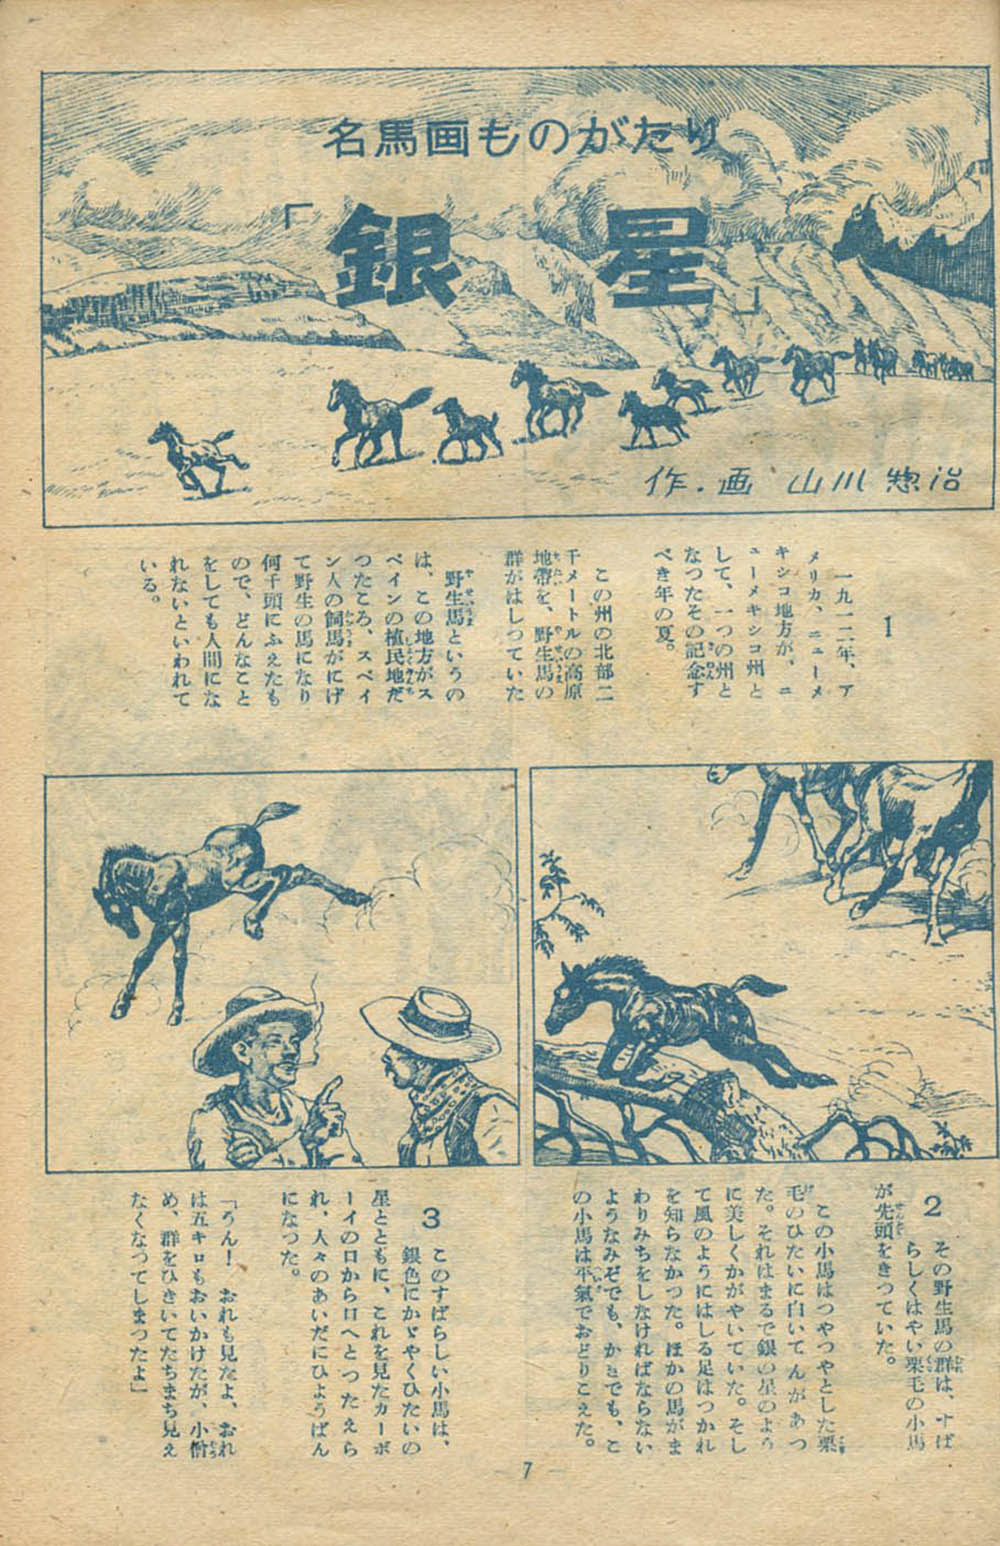 名馬画ものがたり
「銀星」
作・画 山川惣治
1
一九一二年、ア
メリカ、ニューメ
キシコ地方が、ニ
ューメキシコ州と
して、一つの州と
なつたその記念す
べき年の夏。
この州の北部二
千メートルの高原
地帯を、野生馬の
群がはしつていた
野生馬というの
は、この地方がス
ペインの植民地だ
つたころ、スペイ
ン人の飼馬がにげ
て野生の馬になり
何千頭にふえたも
ので、どんなこと
をしても人間にな
れないといわれて
いる。
2
その野生馬の群は、すば
らしくはやい栗毛の小馬
が先頭をきつていた。
この小馬はつやつやとした栗
毛のひたいに白いてんがあつ
た。それはまるで銀の星のよう
に美しくかがやいていた。そし
て風のようにはしる足はつかれ
を知らなかつた。ほかの馬がま
わりみちをしなければならない
ようなみぞでも、かきでも、こ
の小馬は平氣でおどりこえた。
3
このすばらしい小馬は、
銀色にかゞやくひたいの
星とともに、これを見たカーボ
ーイの口から口へとつたえら
れ、人々のあいだにひようばん
になつた。
「うん! おれも見たよ、おれ
は五キロもおいかけたが、小僧
め、群をひきいてたちまち見え
なくなつてしまつたよ」
— 7 —